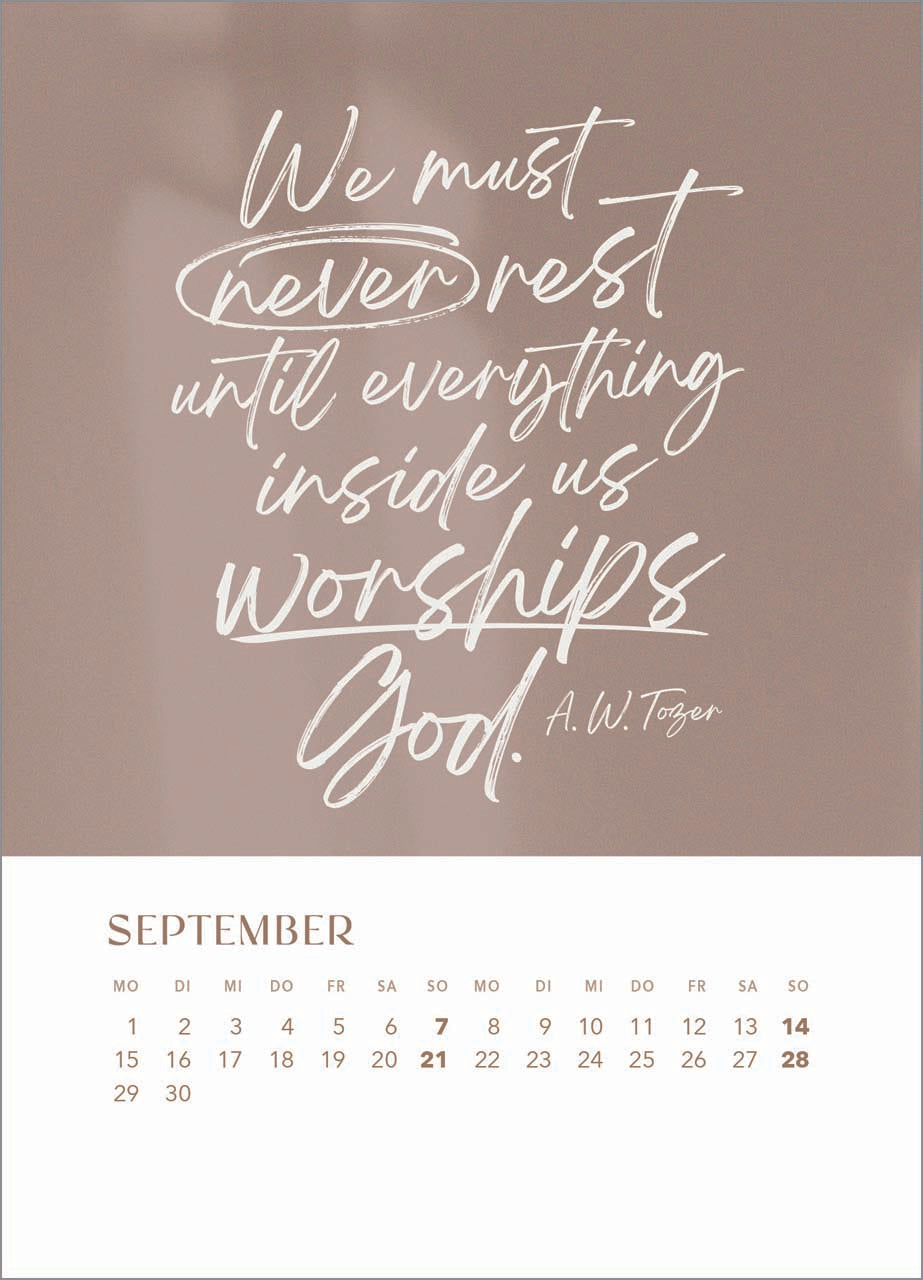 We must
never rest
until everything
inside us
worships
God. A. W. Tozer
SEPTEMBER
MO DI MI DO FR SA SO MO DI MI DO FR SA SO
1 2 3 4 5 6 7 8 9 10 11 12 13 14
15 16 17 18 19 20 21 22 23 24 25 26 27 28
29 30